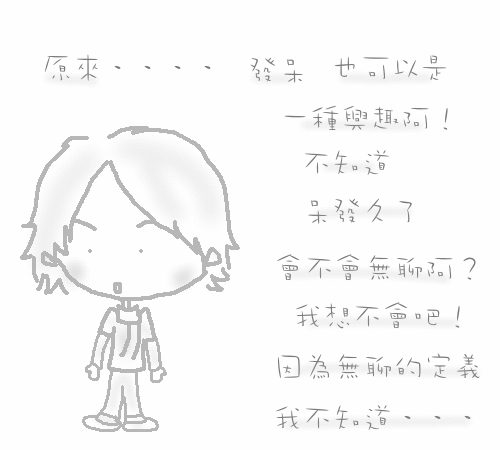 原來‧‧‧‧ 發呆 也可以是
一種興趣阿！
不知道
呆發久了
會不會無聊阿？
我想不會吧！
因為無聊的定義
我不知道‧‧‧